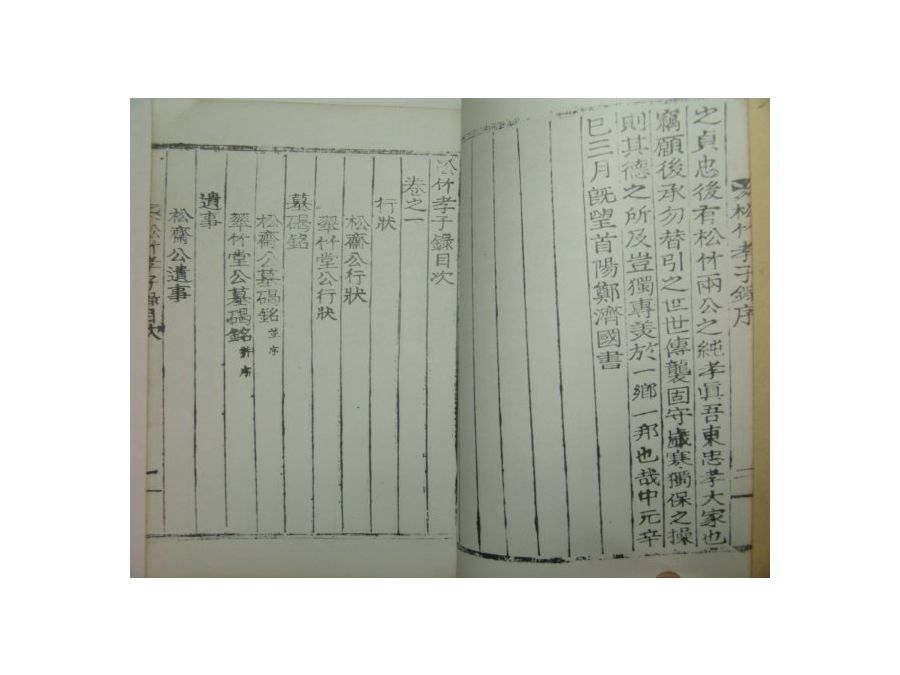 松竹孝子錄序
二
之貞忠後有松竹兩公之純孝眞吾東忠孝大家也
竊願後承勿替引之世世傳襲固守歲寒獨保之操
則其德之所及豈獨專美於一鄕一邦也哉中元辛
巳三月旣望首陽鄭濟國書
松竹孝子錄目次
卷之一
行狀
松齋公行狀
翠竹堂公行狀
墓碣銘
松齋公墓碣銘 並序
翠竹堂公墓碣銘 幷序
遺事
松齋公遺事
松竹孝子錄目次
一